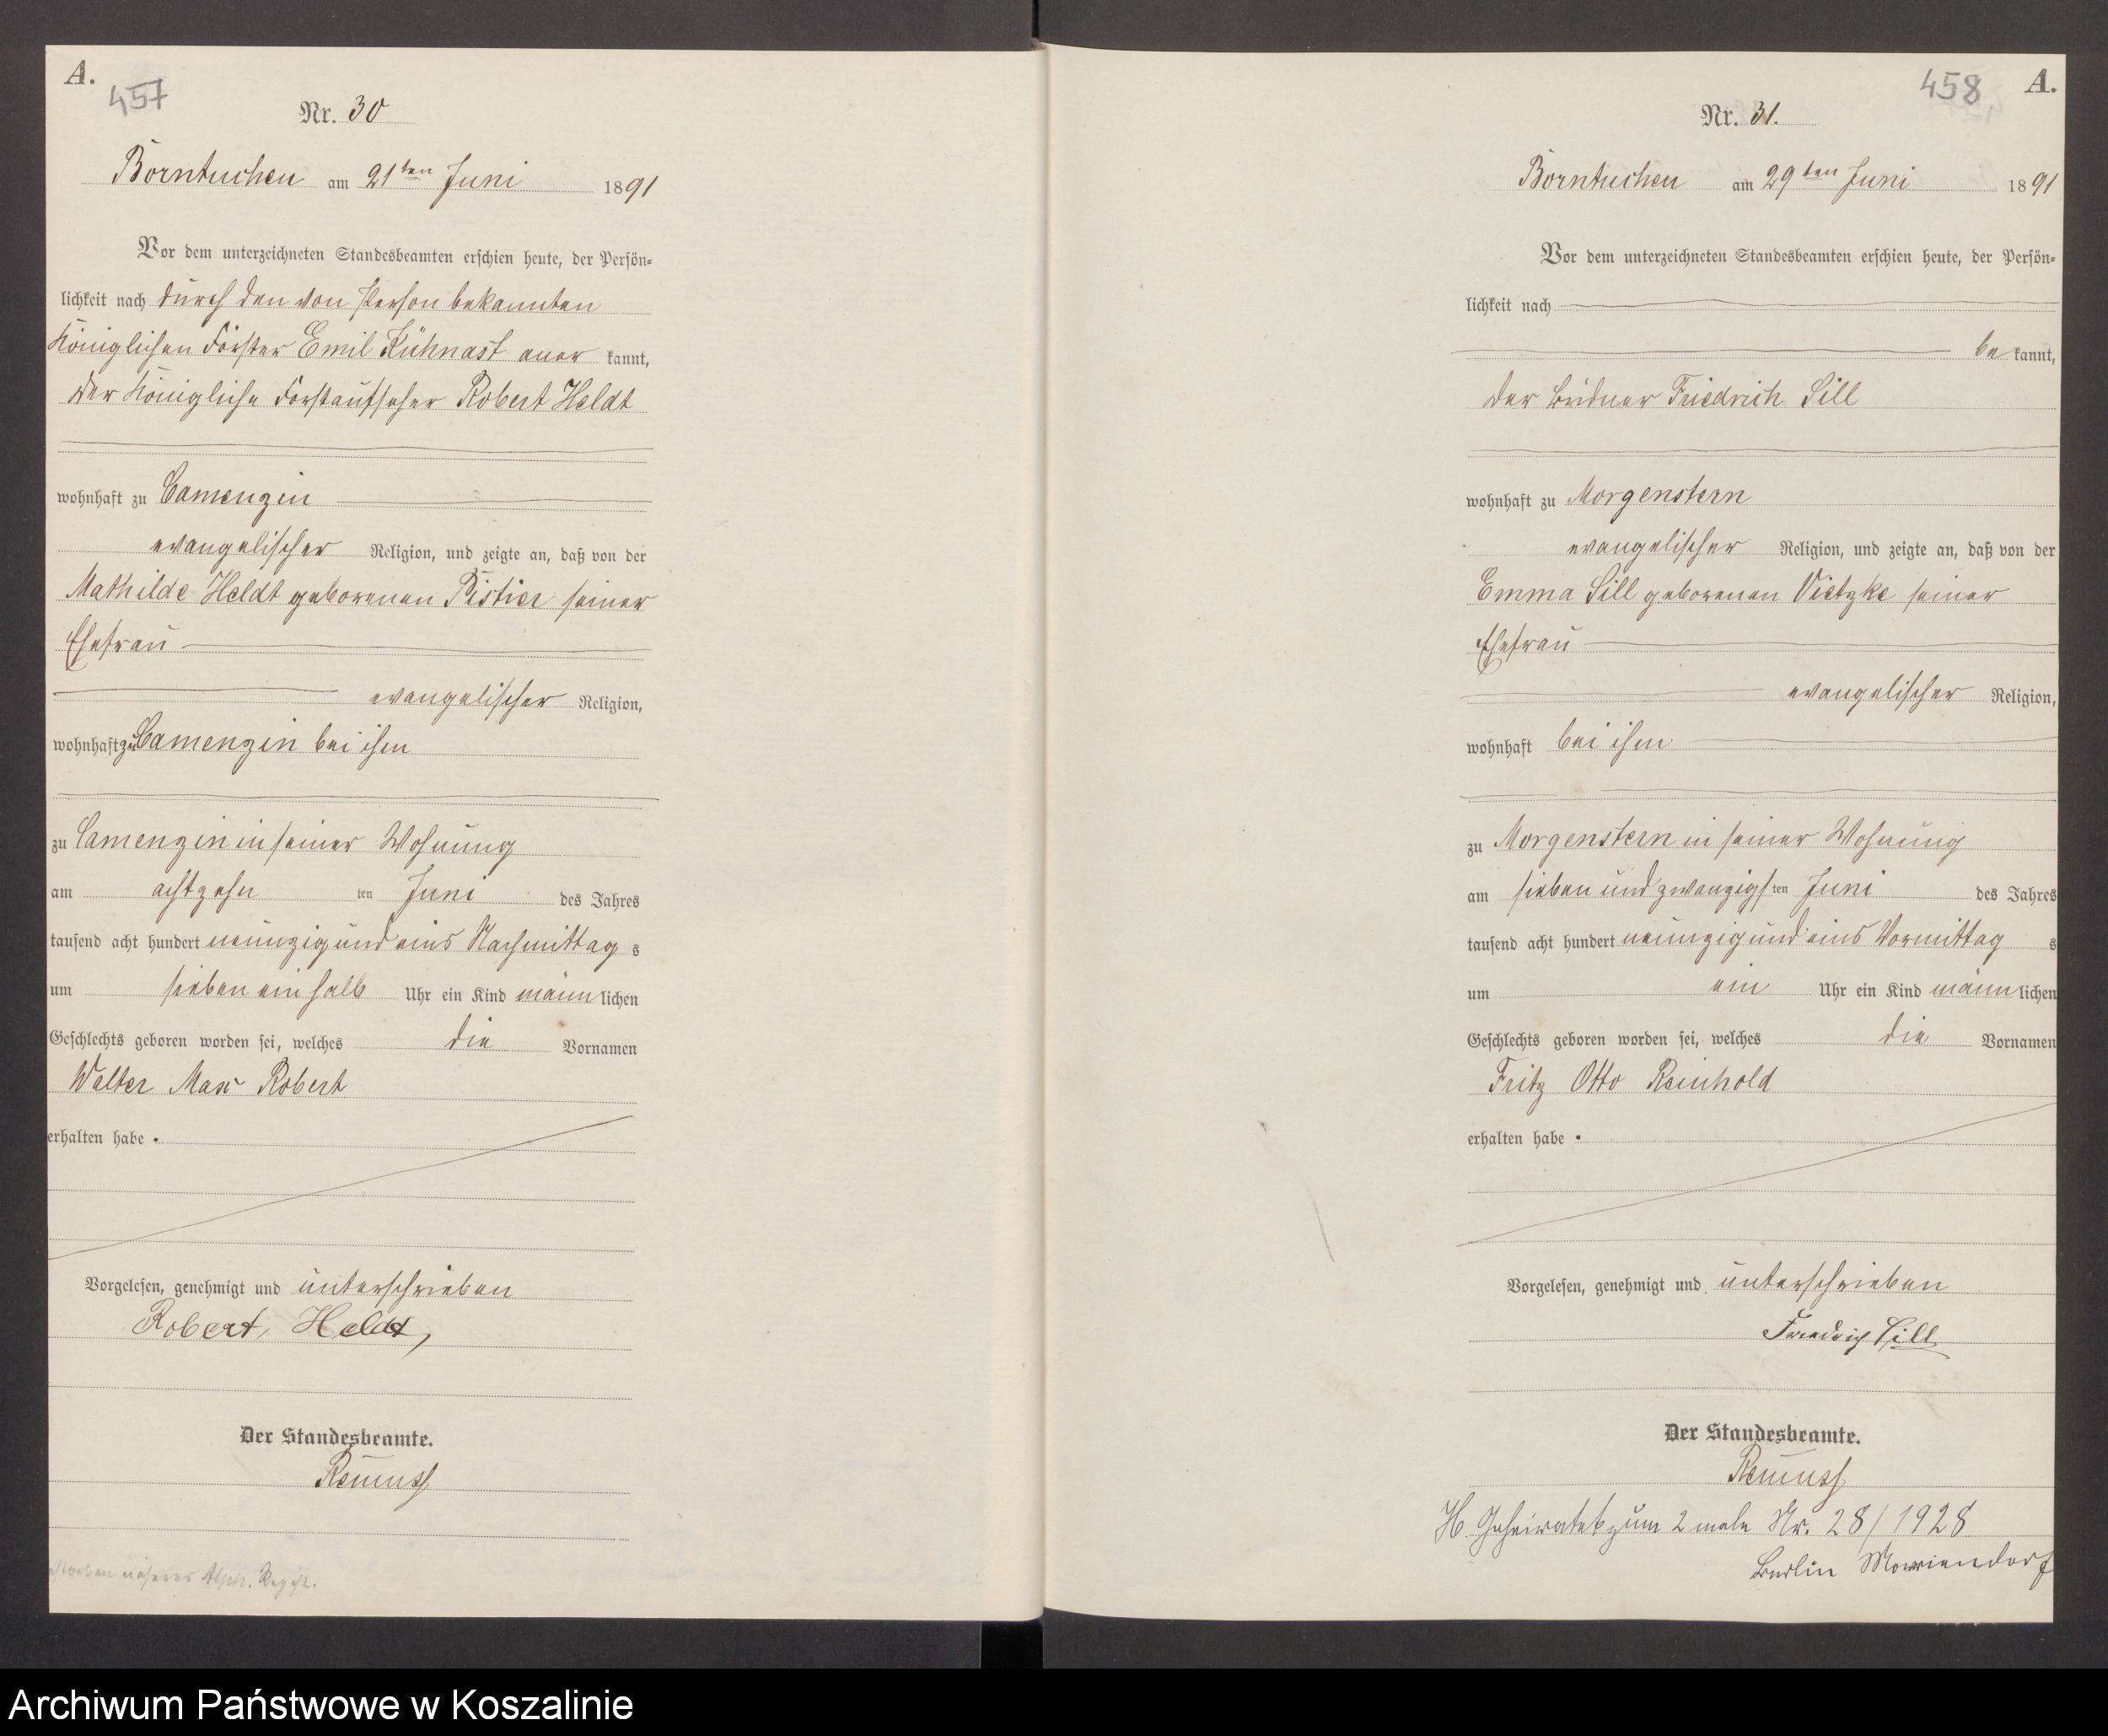 A.
457
Nr. 30
Borntuchen am 21ten Juni 1891
Vor dem unterzeichneten Standesbeamten erschien heute, der Persön-
lichkeit nach durch den von Person bekannten
Königlichen Förster Emil Kühnast aner kannt,
der Königliche Forstaufseher Robert Heldt
wohnhaft zu Camenzin
evangelischer Religion, und zeigte an, daß von der
Mathilde Heldt geborenen Pistier seiner
Ehefrau
evangelischer Religion,
wohnhaft zu Camenzin bei ihm
zu Camenzin in seiner Wohnung
am achtzehn ten Juni des Jahres
tausend acht hundert neunzig und eins Nachmittag s
um sieben ein halb Uhr ein Kind männ lichen
Geschlechts geboren worden sei, welches die Vornamen
Walter Max Robert
erhalten habe .
Vorgelesen, genehmigt und unterschrieben
Robert, Heldt,
Der Standesbeamte.
458 A.
Nr. 31.
Borntuchen am 29ten Juni 1891
Vor dem unterzeichneten Standesbeamten erschien heute, der Persön-
lichkeit nach
be kannt,
der Büdner Friedrich Sill
wohnhaft zu Morgenstern
evangelischer Religion, und zeigte an, daß von der
Emma Sill geborenen Vietzke seiner
Ehefrau
evangelischer Religion,
wohnhaft bei ihm
zu Morgenstern in seiner Wohnung
am sieben und zwanzigs ten Juni des Jahres
tausend acht hundert neunzig und eins Vormittag s
um ein Uhr ein Kind männ lichen
Geschlechts geboren worden sei, welches die Vornamen
Fritz Otto Reinhold
erhalten habe .
Vorgelesen, genehmigt und unterschrieben
Friedrich Sill
Der Standesbeamte.
H. Geheiratet zum 2 male Nr. 28/1928
Berlin Mariendorf
Archiwum Państwowe w Koszalinie